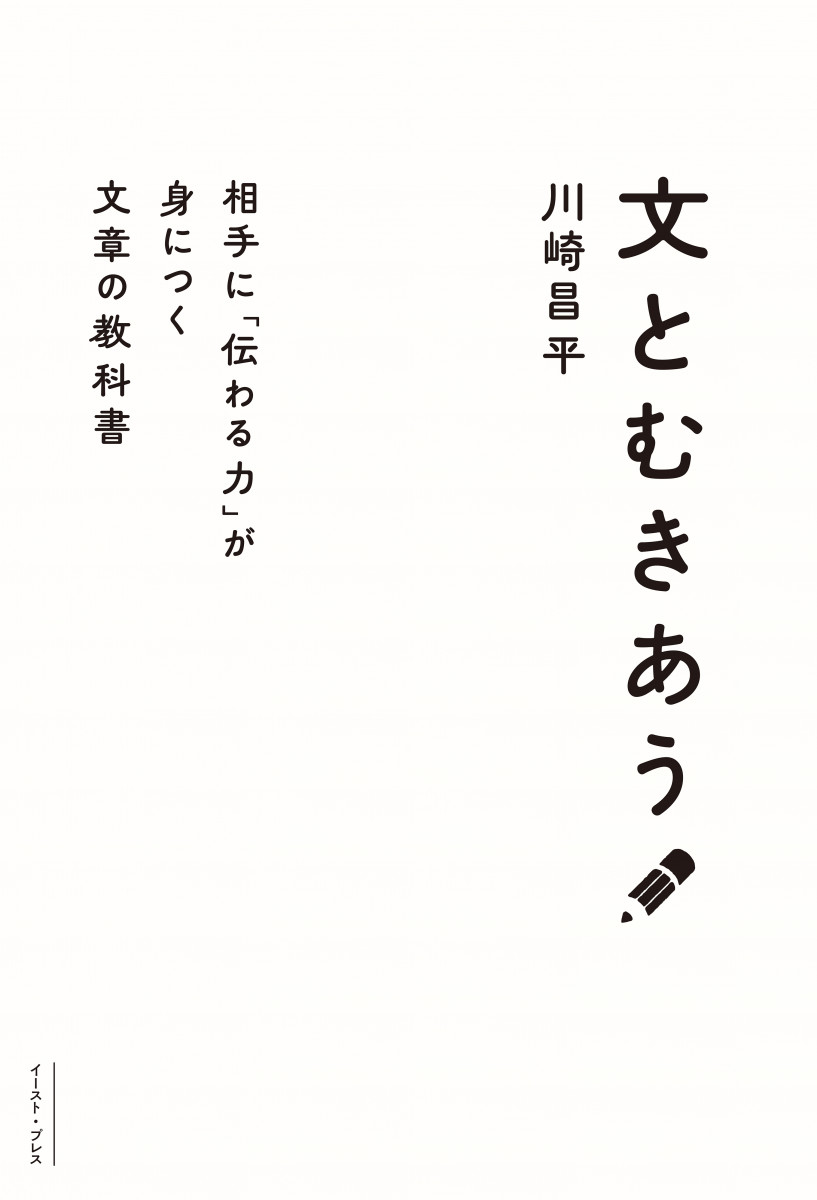 文とむきあう
川崎昌平
相手に「伝わる力」が
身につく
文章の教科書
イースト・プレス